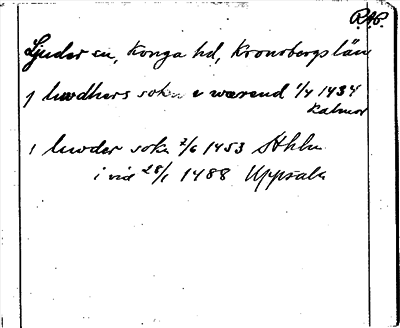 RAP.
Ljuder sn, Konga hd, Kronobergs län
j liwdhers sokn i warend 1/4 1434
Kalmar
i liwder sokn 2/6 1453 Sthlm
i vid 28/1 1488 Uppsala